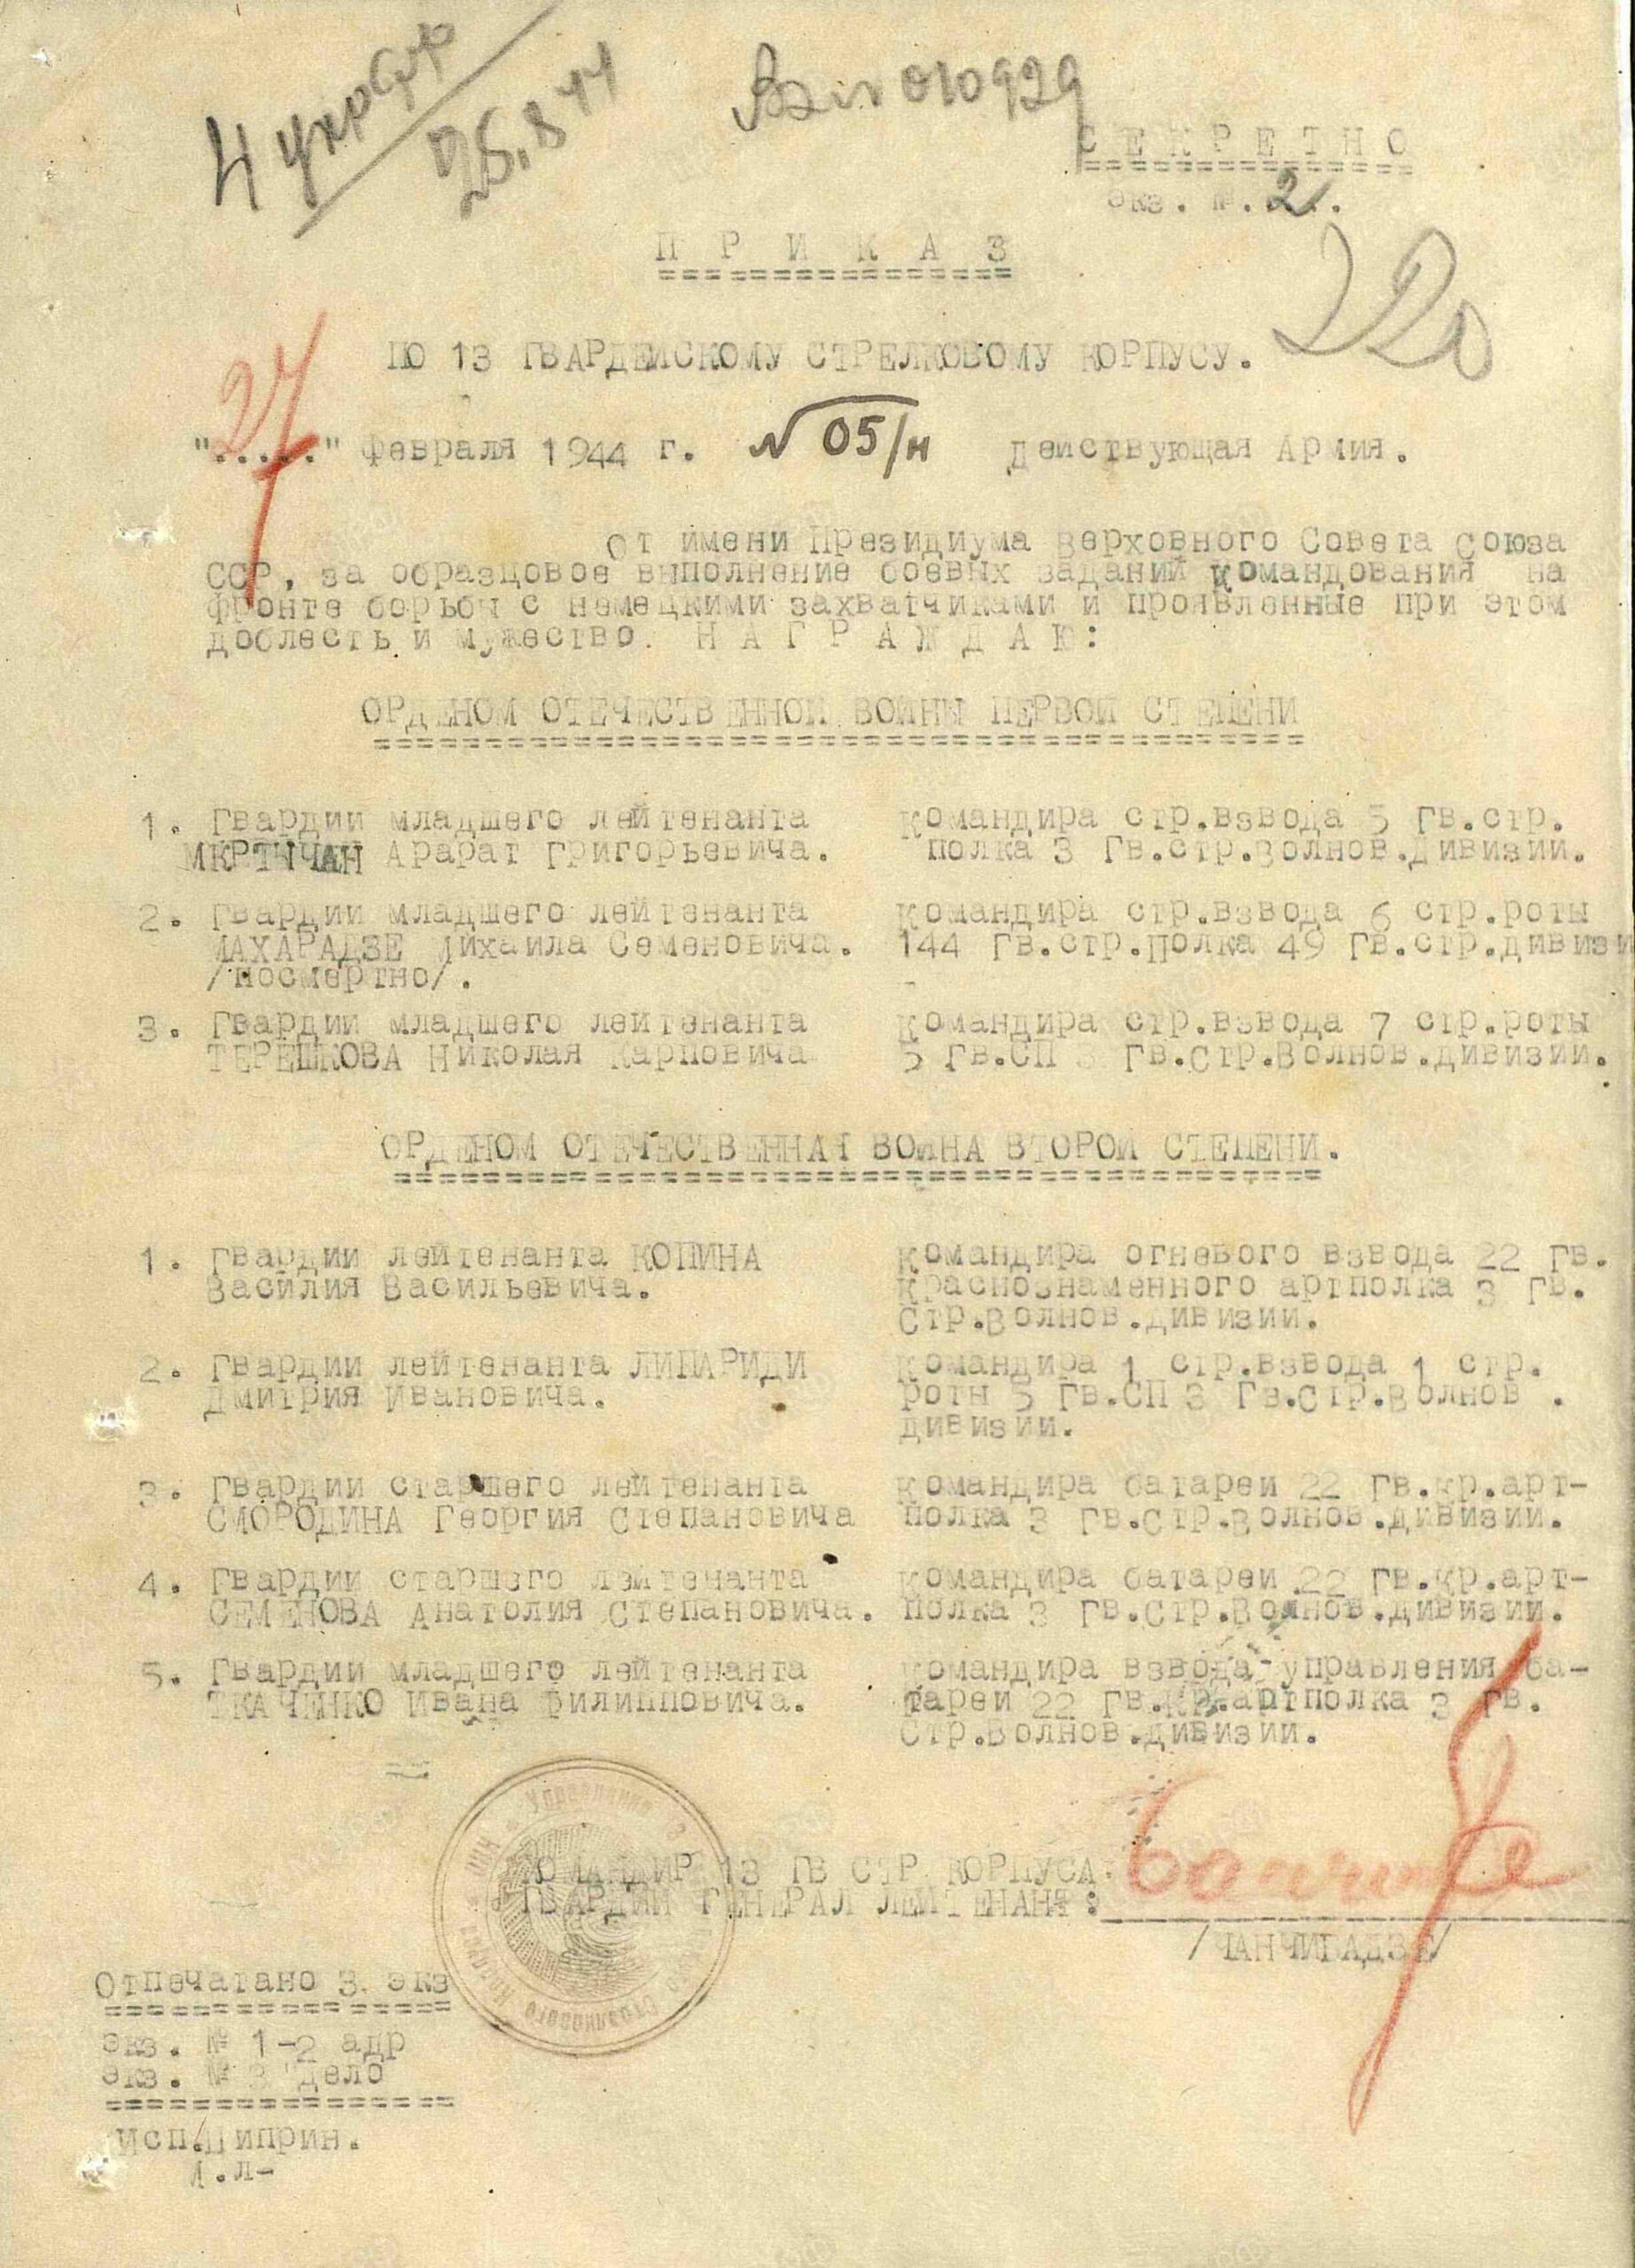 4 Укр
25.8 44
Вх № 010929
СЕКРЕТНО
Экз. №.2.
ПРИКАЗ
ПО 13 ГВАРДЕЙСКОМУ СТРЕЛКОВОМУ КОРПУСУ.
220
"27" Февраля 1944 г. № 05/н Действующая Армия.
От имени Президиума Верховного Совета Союза
ССР, за образцовое выполнение боевых заданий Командования на
фронте борьбы с немецкими захватчиками и проявленные при этом
доблесть и мужество. НАГРАЖДАЮ:
ОРДЕНОМ ОТЕЧЕСТВЕННОЙ ВОЙНЫ ПЕРВОЙ СТЕПЕНИ
1. Гвардии младшего лейтенанта Командира стр.взвода 5 Гв.стр.
МКРТЫЧАН Арарат Григорьевича. полка 3 Гв.стр.Волнов.дивизии.
2. Гвардии младшего лейтенанта Командира стр.взвода 6 стр.роты
МАХАРАДЗЕ Михаила Семеновича. 144 Гв.стр.Полка 49 Гв.стр.дивизи
/посмертно/.
3. Гвардии младшего лейтенанта Командира стр.взвода 7 стр.роты
ТЕРЕШКОВА Николая Карповича 5 Гв.СП 3 Гв.Стр.Волнов.дивизии.
ОРДЕНОМ ОТЕЧЕСТВЕННАЯ ВОЙНА ВТОРОЙ СТЕПЕНИ.
1. Гвардии лейтенанта КОПИНА Командира огневого взвода 22 Гв.
Василия Васильевича. Краснознаменного артполка 3 Гв.
Стр.Волнов.дивизии.
2. Гвардии лейтенанта ЛИПАРИДИ Командира 1 стр.взвода 1 стр.
Дмитрия Ивановича. роты 5 Гв.СП 3 Гв.Стр.Волнов .
дивизии.
3. Гвардии старшего лейтенанта Командира батареи 22 Гв.кр.арт-
СМОРОДИНА Георгия Степановича полка 3 Гв.Стр.Волнов.дивизии.
4. Гвардии старшего лейтенанта Командира батареи 22 Гв.кр.арт-
СЕМЕНОВА Анатолия Степановича. полка 3 Гв.Стр.Волнов.дивизии.
5. Гвардии младшего лейтенанта Командира взвода управления ба-
ТКАЧЕНКО Ивана Филипповича. тареи 22 Гв.кр.артполка 3 Гв.
Стр.Волнов.дивизии.
Управление Стрелкового Корпуса НКО
КОМАНДИР 13 ГВ СТР КОРПУСА
ГВАРДИИ ГЕНЕРАЛ ЛЕЙТЕНАНТ:
/ЧАНЧИБАДЗЕ/
Отпечатано 3 экз
экз. № 1-2 адр
экз. № 3 дело
Исп.Циприн.